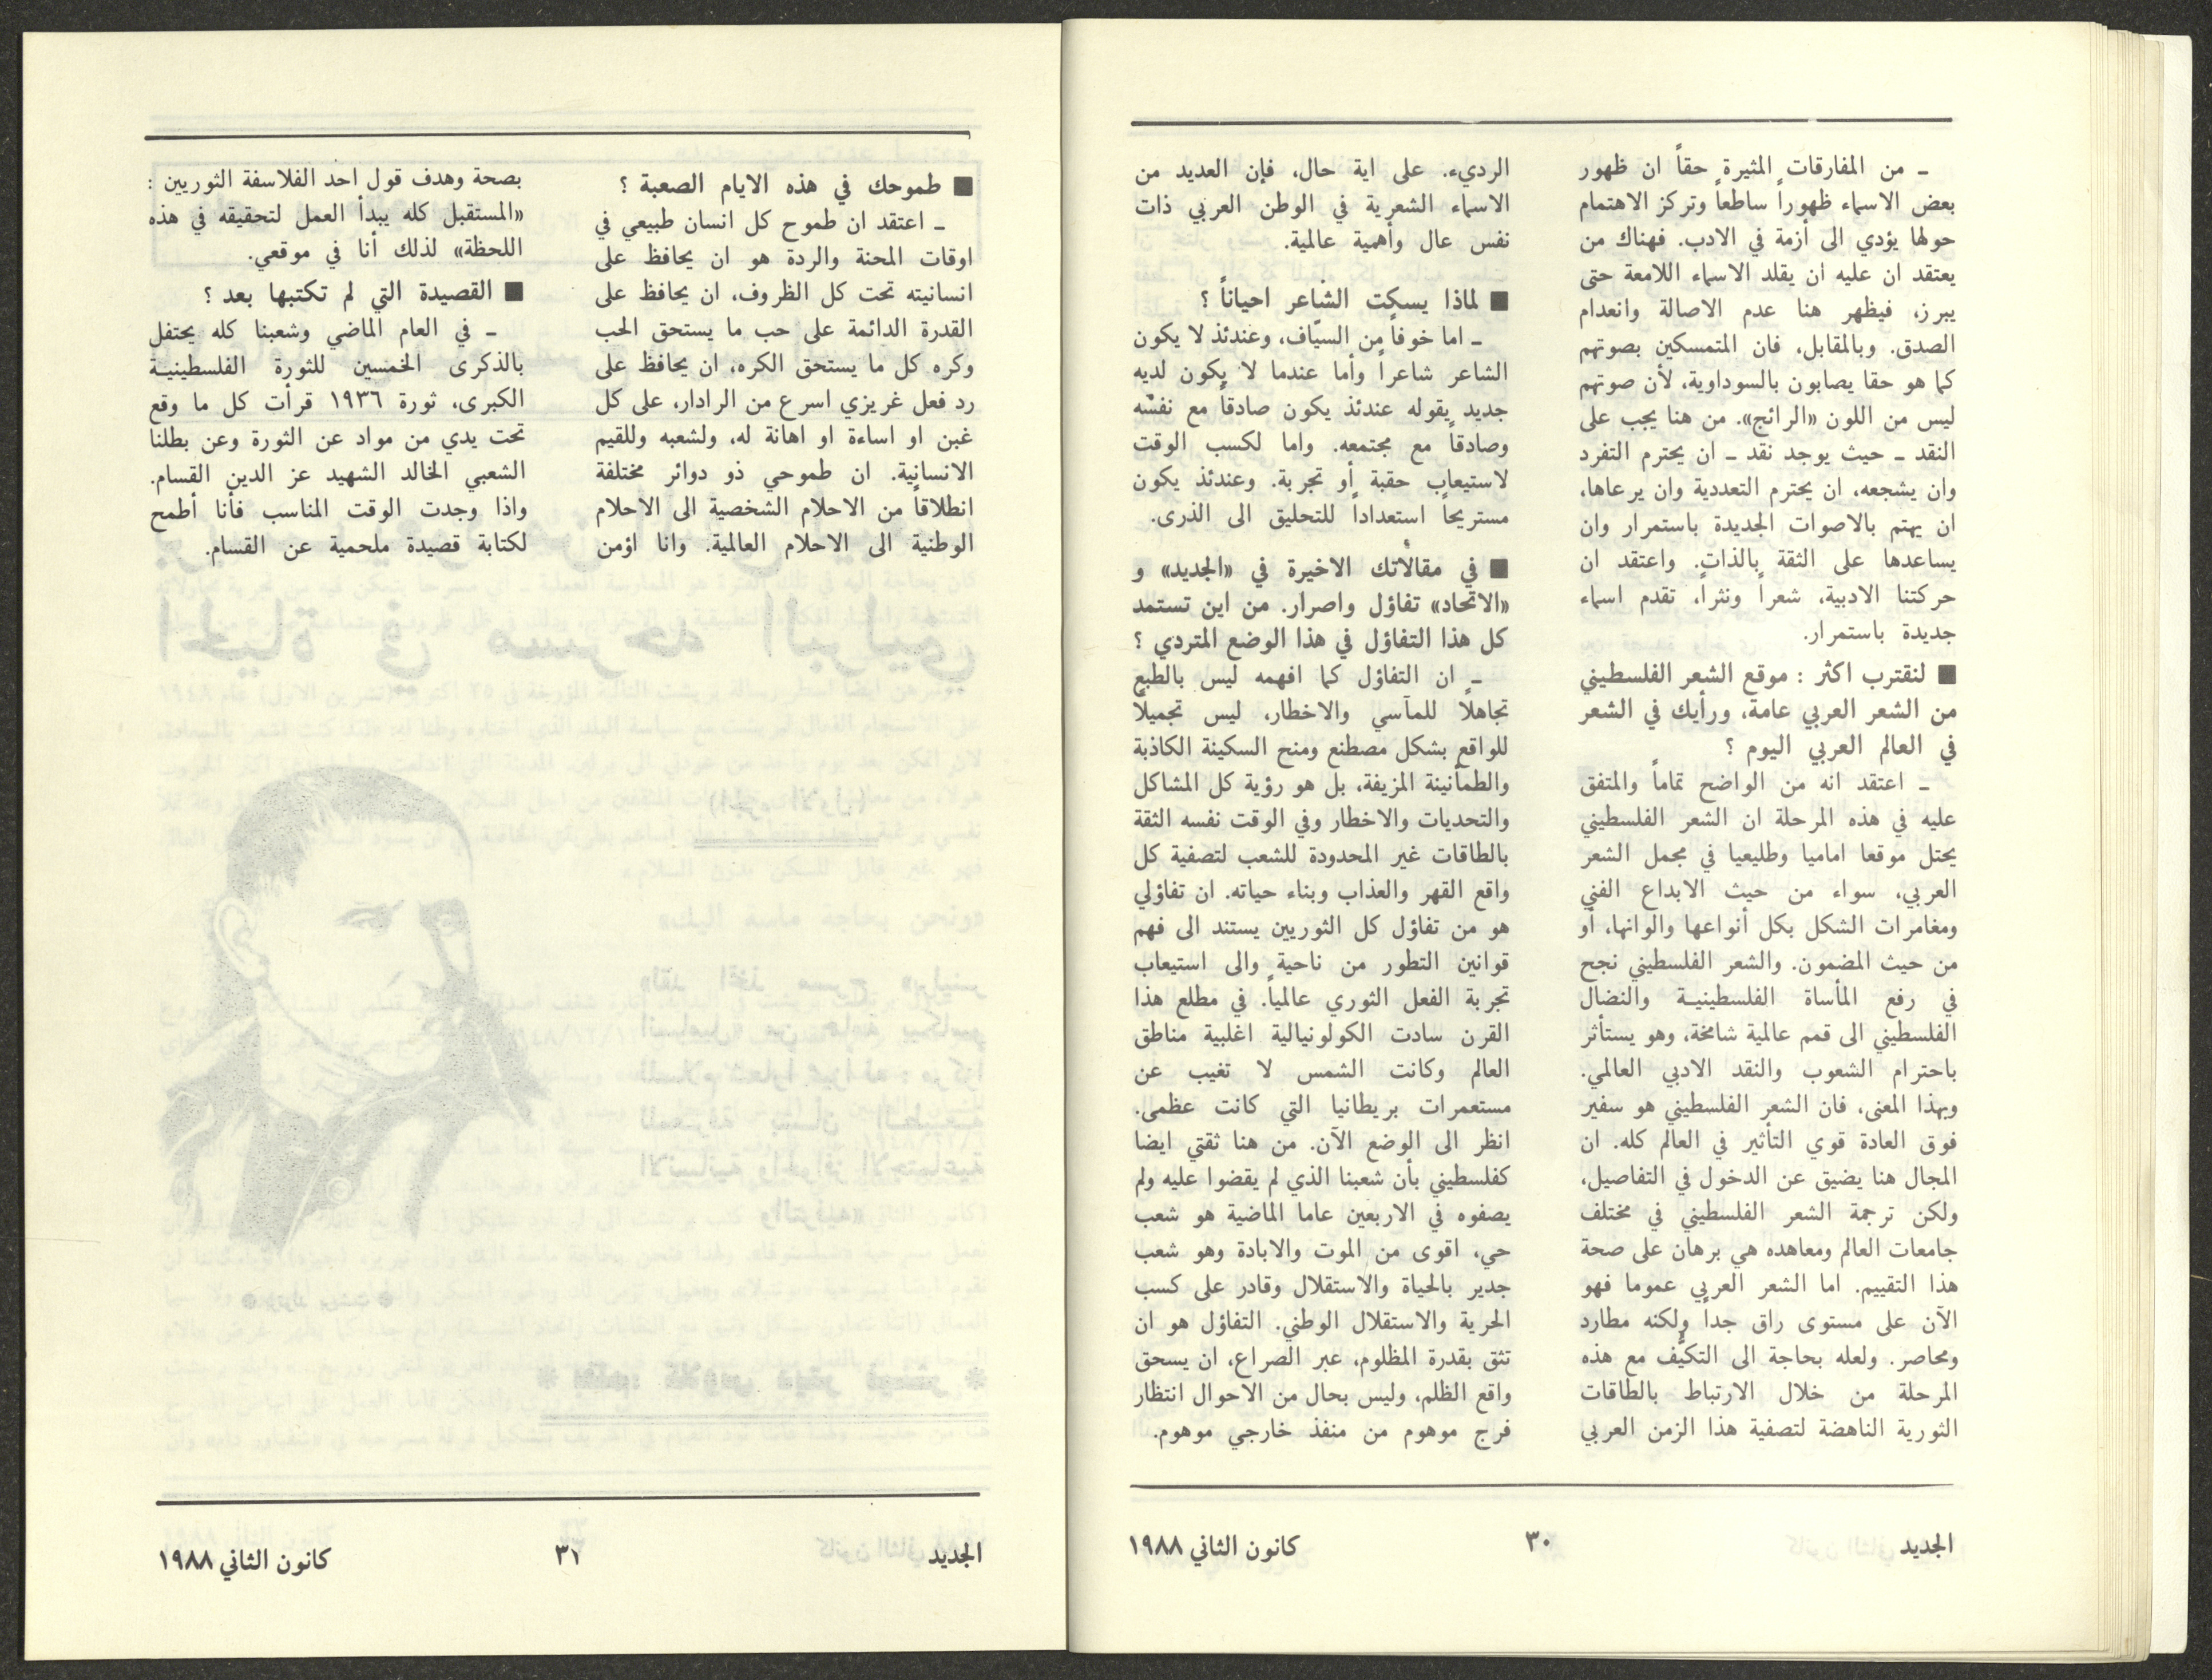 ـ من المفارقات المثيرة حقاً ان ظهور
بعض الاسماء ظهوراً ساطعاً وتركز الاهتمام
حولها يؤدي الى أزمة في الادب. فهناك من
يعتقد ان عليه ان يقلد الاسماء اللامعة حتى
يبرز، فيظهر هنا عدم الاصالة وانعدام
الصدق. وبالمقابل، فان المتمسكين بصوتهم
كما هو حقا يصابون بالسوداوية، لأن صوتهم
ليس من اللون «الرائج». من هنا يجب على
النقد ـ حيث يوجد نقد ـ ان يحترم التفرد
وان يشجعه، ان يحترم التعددية وان يرعاها،
ان يهتم بالاصوات الجديدة باستمرار وان
يساعدها على الثقة بالذات. واعتقد ان
حركتنا الادبية، شعراً ونثراً، تقدم اسماء
جديدة باستمرار.
■ لنقترب اكثر : موقع الشعر الفلسطيني
من الشعر العربي عامة، ورأيك في الشعر
في العالم العربي اليوم ؟
ـ اعتقد انه من الواضح تماماً والمتفق
عليه في هذه المرحلة ان الشعر الفلسطيني
يحتل موقعا اماميا وطليعيا في مجمل الشعر
العربي، سواء من حيث الابداع الفني
ومغامرات الشكل بكل أنواعها والوانها، أو
من حيث المضمون. والشعر الفلسطيني نجح
في رفع المأساة الفلسطينية والنضال
الفلسطيني الى قمم عالمية شامخة، وهو يستأثر
باحترام الشعوب والنقد الادبي العالمي.
وبهذا المعنى، فان الشعر الفلسطيني هو سفير
فوق العادة قوي التأثير في العالم كله. ان
المجال هنا يضيق عن الدخول في التفاصيل،
ولكن ترجمة الشعر الفلسطيني في مختلف
جامعات العالم ومعاهده هي برهان على صحة
هذا التقييم. اما الشعر العربي عموما فهو
الآن على مستوى راق جداً ولكنه مطارد
ومحاصر. ولعله بحاجة الى التكيُّف مع هذه
المرحلة من خلال الارتباط بالطاقات
الثورية الناهضة لتصفية هذا الزمن العربي
الرديء. على اية حال، فإن العديد من
الاسماء الشعرية في الوطن العربي ذات
نفس عال وأهمية عالمية.
■ لماذا يسكت الشاعر احياناً ؟
ـ اما خوفاً من السيّاف، وعندئذ لا يكون
الشاعر شاعراً وأما عندما لا يكون لديه
جديد يقوله عندئذ يكون صادقاً مع نفسه
وصادقاً مع مجتمعه. واما لكسب الوقت
لاستيعاب حقبة أو تجربة. وعندئذ يكون
مستريحاً استعداداً للتحليق الى الذرى.
■ في مقالاتك الاخيرة في «الجديد» و
«الاتحاد» تفاؤل واصرار. من اين تستمد
كل هذا التفاؤل في هذا الوضع المتردي ؟
ـ ان التفاؤل كما افهمه ليس بالطبع
تجاهلاً للمآسي والاخطار، ليس تجميلاً
للواقع بشكل مصطنع ومنح السكينة الكاذبة
والطمأنينة المزيفة، بل هو رؤية كل المشاكل
والتحديات والاخطار وفي الوقت نفسه الثقة
بالطاقات غير المحدودة للشعب لتصفية كل
واقع القهر والعذاب وبناء حياته. ان تفاؤلي
هو من تفاؤل كل الثوريين يستند الى فهم
قوانين التطور من ناحية والى استيعاب
تجربة الفعل الثوري عالمياً. في مطلع هذا
القرن سادت الكولونيالية اغلبية مناطق
العالم وكانت الشمس لا تغيب عن
مستعمرات بريطانيا التي كانت عظمى.
انظر الى الوضع الآن. من هنا ثقتي ايضا
كفلسطيني بأن شعبنا الذي لم يقضوا عليه ولم
يصفوه في الاربعين عاما الماضية هو شعب
حي، اقوى من الموت والابادة وهو شعب
جدير بالحياة والاستقلال وقادر على كسب
الحرية والاستقلال الوطني. التفاؤل هو ان
تثق بقدرة المظلوم، عبر الصراع، ان يسحق
واقع الظلم، وليس بحال من الاحوال انتظار
فرج موهوم من منفذ خارجي موهوم.
الجديد
٣٠
كانون الثاني ١٩٨٨
■ طموحك في هذه الايام الصعبة ؟
ـ اعتقد ان طموح كل انسان طبيعي في
اوقات المحنة والردة هو ان يحافظ على
انسانيته تحت كل الظروف، ان يحافظ على
القدرة الدائمة على حب ما يستحق الحب
وكره كل ما يستحق الكره، ان يحافظ على
رد فعل غريزي اسرع من الرادار، على كل
غبن او اساءة او اهانة له، ولشعبه وللقيم
الانسانية. ان طموحي ذو دوائر مختلفة
انطلاقاً من الاحلام الشخصية الى الاحلام
الوطنية الى الاحلام العالمية. وانا اؤمن
بصحة وهدف قول احد الفلاسفة الثوريين :
«المستقبل كله يبدأ العمل لتحقيقه في هذه
اللحظة» لذلك أنا في موقعي.
■ القصيدة التي لم تكتبها بعد ؟
ـ في العام الماضي وشعبنا كله يحتفل
بالذكرى الخمسين للثورة الفلسطينية
الكبرى، ثورة ١٩٣٦ قرأت كل ما وقع
تحت يدي من مواد عن الثورة وعن بطلنا
الشعبي الخالد الشهيد عز الدين القسام.
واذا وجدت الوقت المناسب فأنا أطمح
لكتابة قصيدة ملحمية عن القسام.
الجديد
٣١
كانون الثاني ١٩٨٨